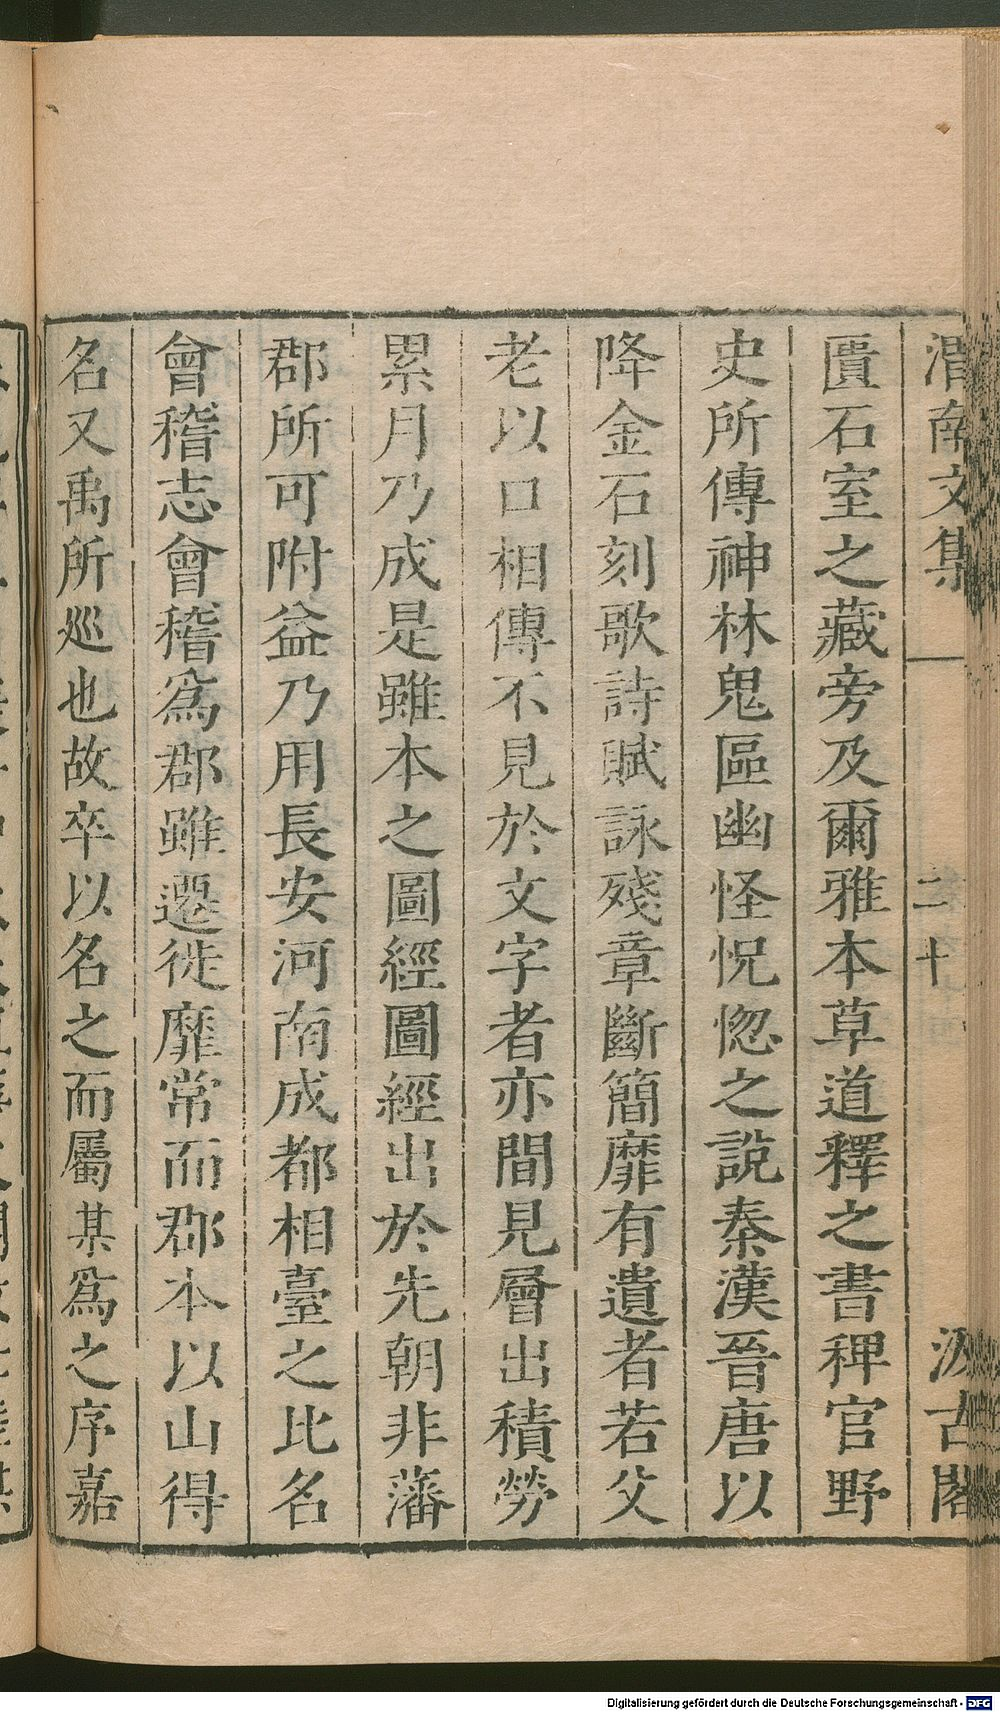 渭南文集 二十 汲古閣
匱石室之藏旁及爾雅本草道釋之書稗官野
史所傳神林鬼區幽怪怳惚之說秦漢晉唐以
降金石刻歌詩賦詠殘章斷簡靡有遺者若父
老以口相傳不見於文字者亦間見層出積勞
累月乃成是雖本之圖經圖經出於先朝非藩
郡所可附益乃用長安河南成都相臺之比名
會稽志會稽爲郡雖遷徙靡常而郡本以山得
名又禹所巡也故卒以名之而屬某爲之序嘉
Digitalisierung gefördert durch die Deutsche Forschungsgemeinschaft - DFG